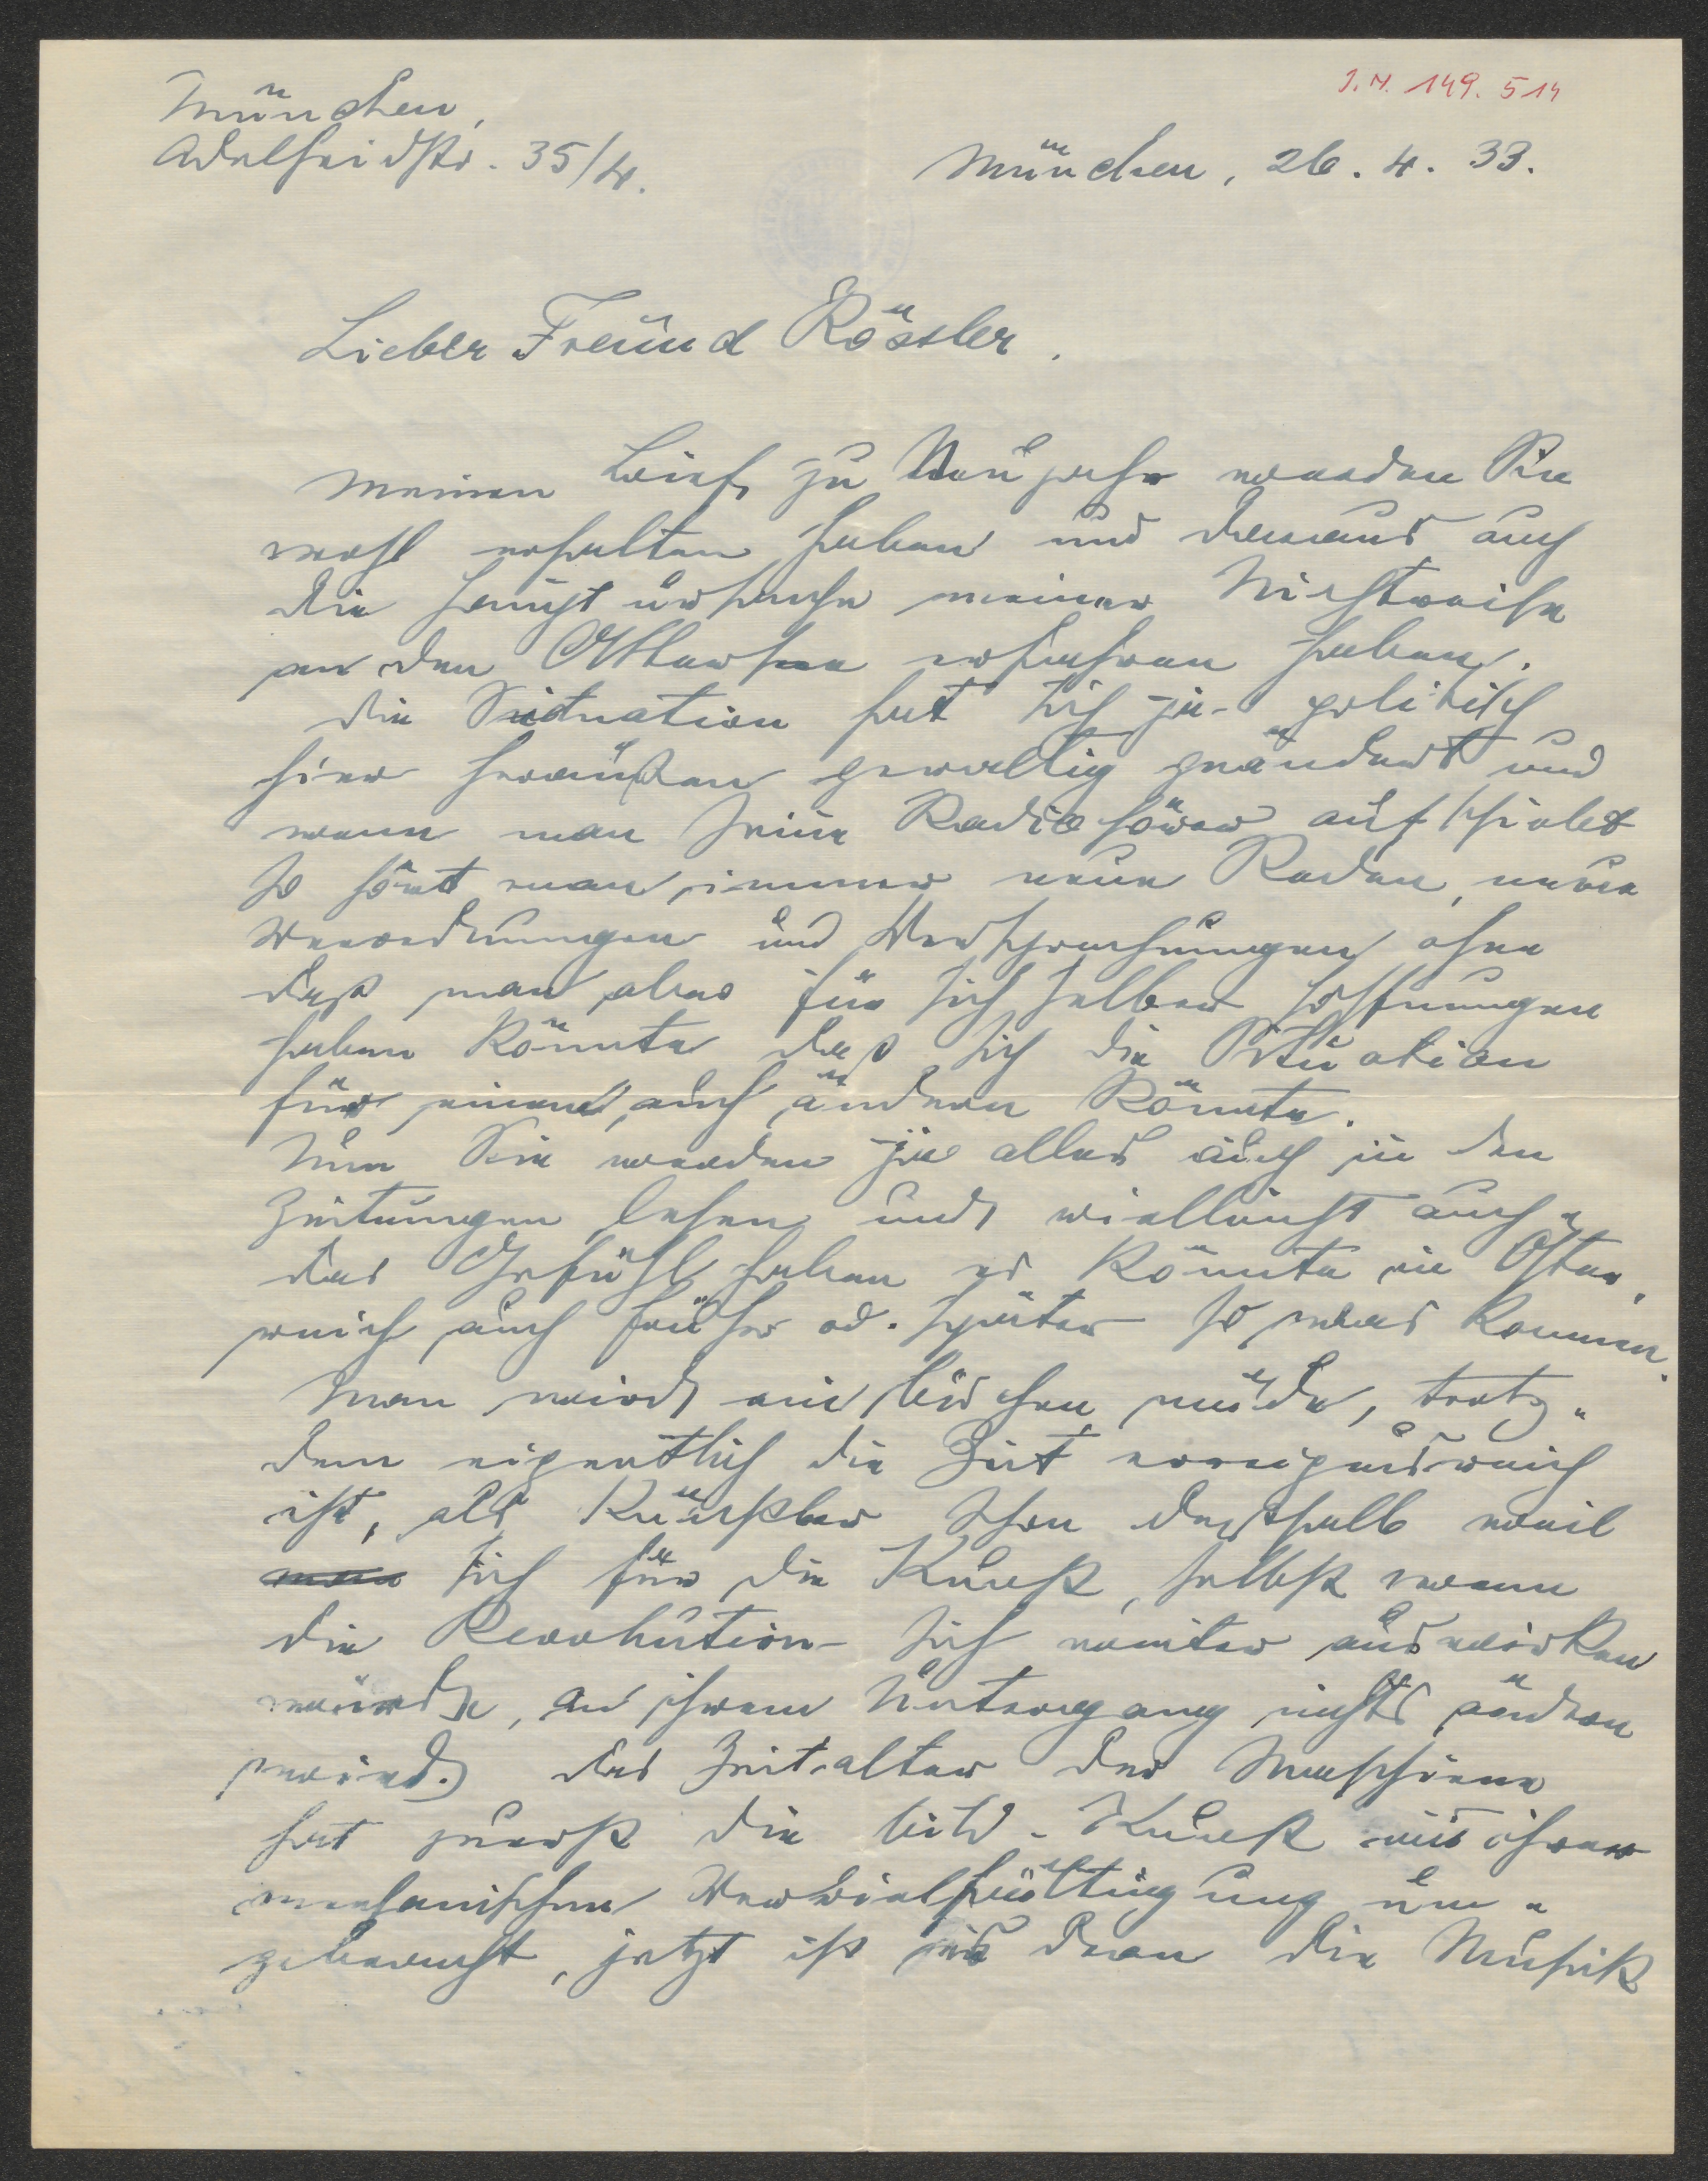 J.N. 149.514
München,
Adelheidstr. 35/4.
München, 26. 4. 33.
Lieber Freund Rössler.
Meinen Brief zu Neujahr werden Sie
wohl erhalten haben und daraus auch
die Hauptursache meiner Nichtreise
an den Attersee erfahren haben.
Die Situation hat sich ja politisch
hier heraußen gewaltig geändert und
wenn man seine Radiohörer aufschiebt
so hört man immer neue Reden, neue
Verordnungen und Versprechungen ohne
daß man aber für sich selber Hoffnungen
haben könnte daß sich die Situation
für einen auch ändern könnte.
Nun Sie werden ja alles auch in den
Zeitungen lesen und vielleicht auch
das Gefühl haben es könnte in Öster-
reich auch früher od. später so was kommen.
Man wird ein bischen müde, trotz-
dem eigentlich die Zeit ereignisreich
ist, als Künstler schon desshalb weil
sich für die Kunst, selbst wenn
die Revolution sich weiter auswirken
würde, an ihrem Untergang nichts ändern
wird. Das Zeitalter der Maschine
hat zuerst die bild. Kunst mit ihrer
mechanischen Vervielfältigung um-
gebracht, jetzt ist sie dran die Musik